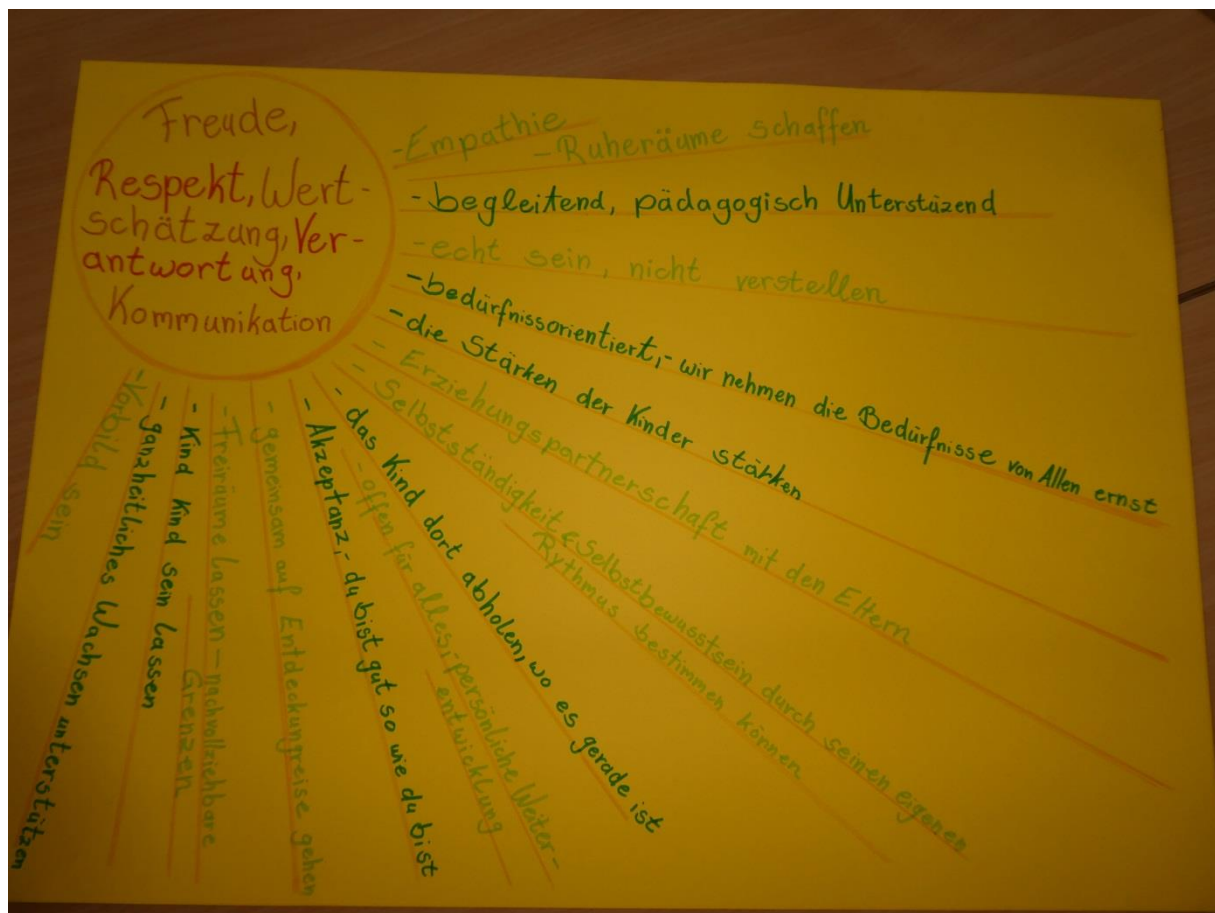 Freude,
Respekt, Wert-
schätzung, Ver-
antwortung,
Kommunikation
-Empathie
-Ruheräume schaffen
-begleitend, pädagogisch Unterstüzend
-echt sein, nicht verstellen
-bedürfnissorientiert,- wir nehmen die Bedürfnisse von Allen ernst
-die Stärken der Kinder stärken
- Erziehungspartnerschaft mit den Eltern
- Selbstständigkeit & Selbstbewusstsein durch seinen eigenen
Rythmus bestimmen können
- das Kind dort abholen, wo es gerade ist
- offen für alles, persönliche Weiter-
entwicklung
- Akzeptanz,- du bist gut so wie du bist
- gemeinsam auf Entdeckungreise gehen
-Freiräume Lassen - nachvollziehbare
Grenzen
- Kind Kind sein Lassen
- ganzheitliches Wachsen unterstützen
-Vorbild sein